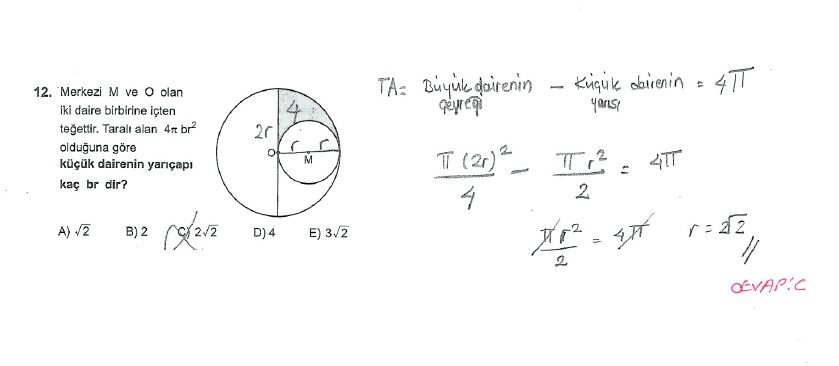 12. Merkezi M ve O olan
iki daire birbirine içten
teğettir. Taralı alan 4π br²
olduğuna göre
küçük dairenin yarıçapı
kaç br dir?
4
2r
r r
O
M
A) √2 B) 2 C) 2√2 D) 4 E) 3√2
TA = Büyük dairenin çeyreği – Küçük dairenin yarısı = 4π
π(2r)²/4 – πr²/2 = 4π
πr²/2 = 4π r = 2√2 //
CEVAP: C